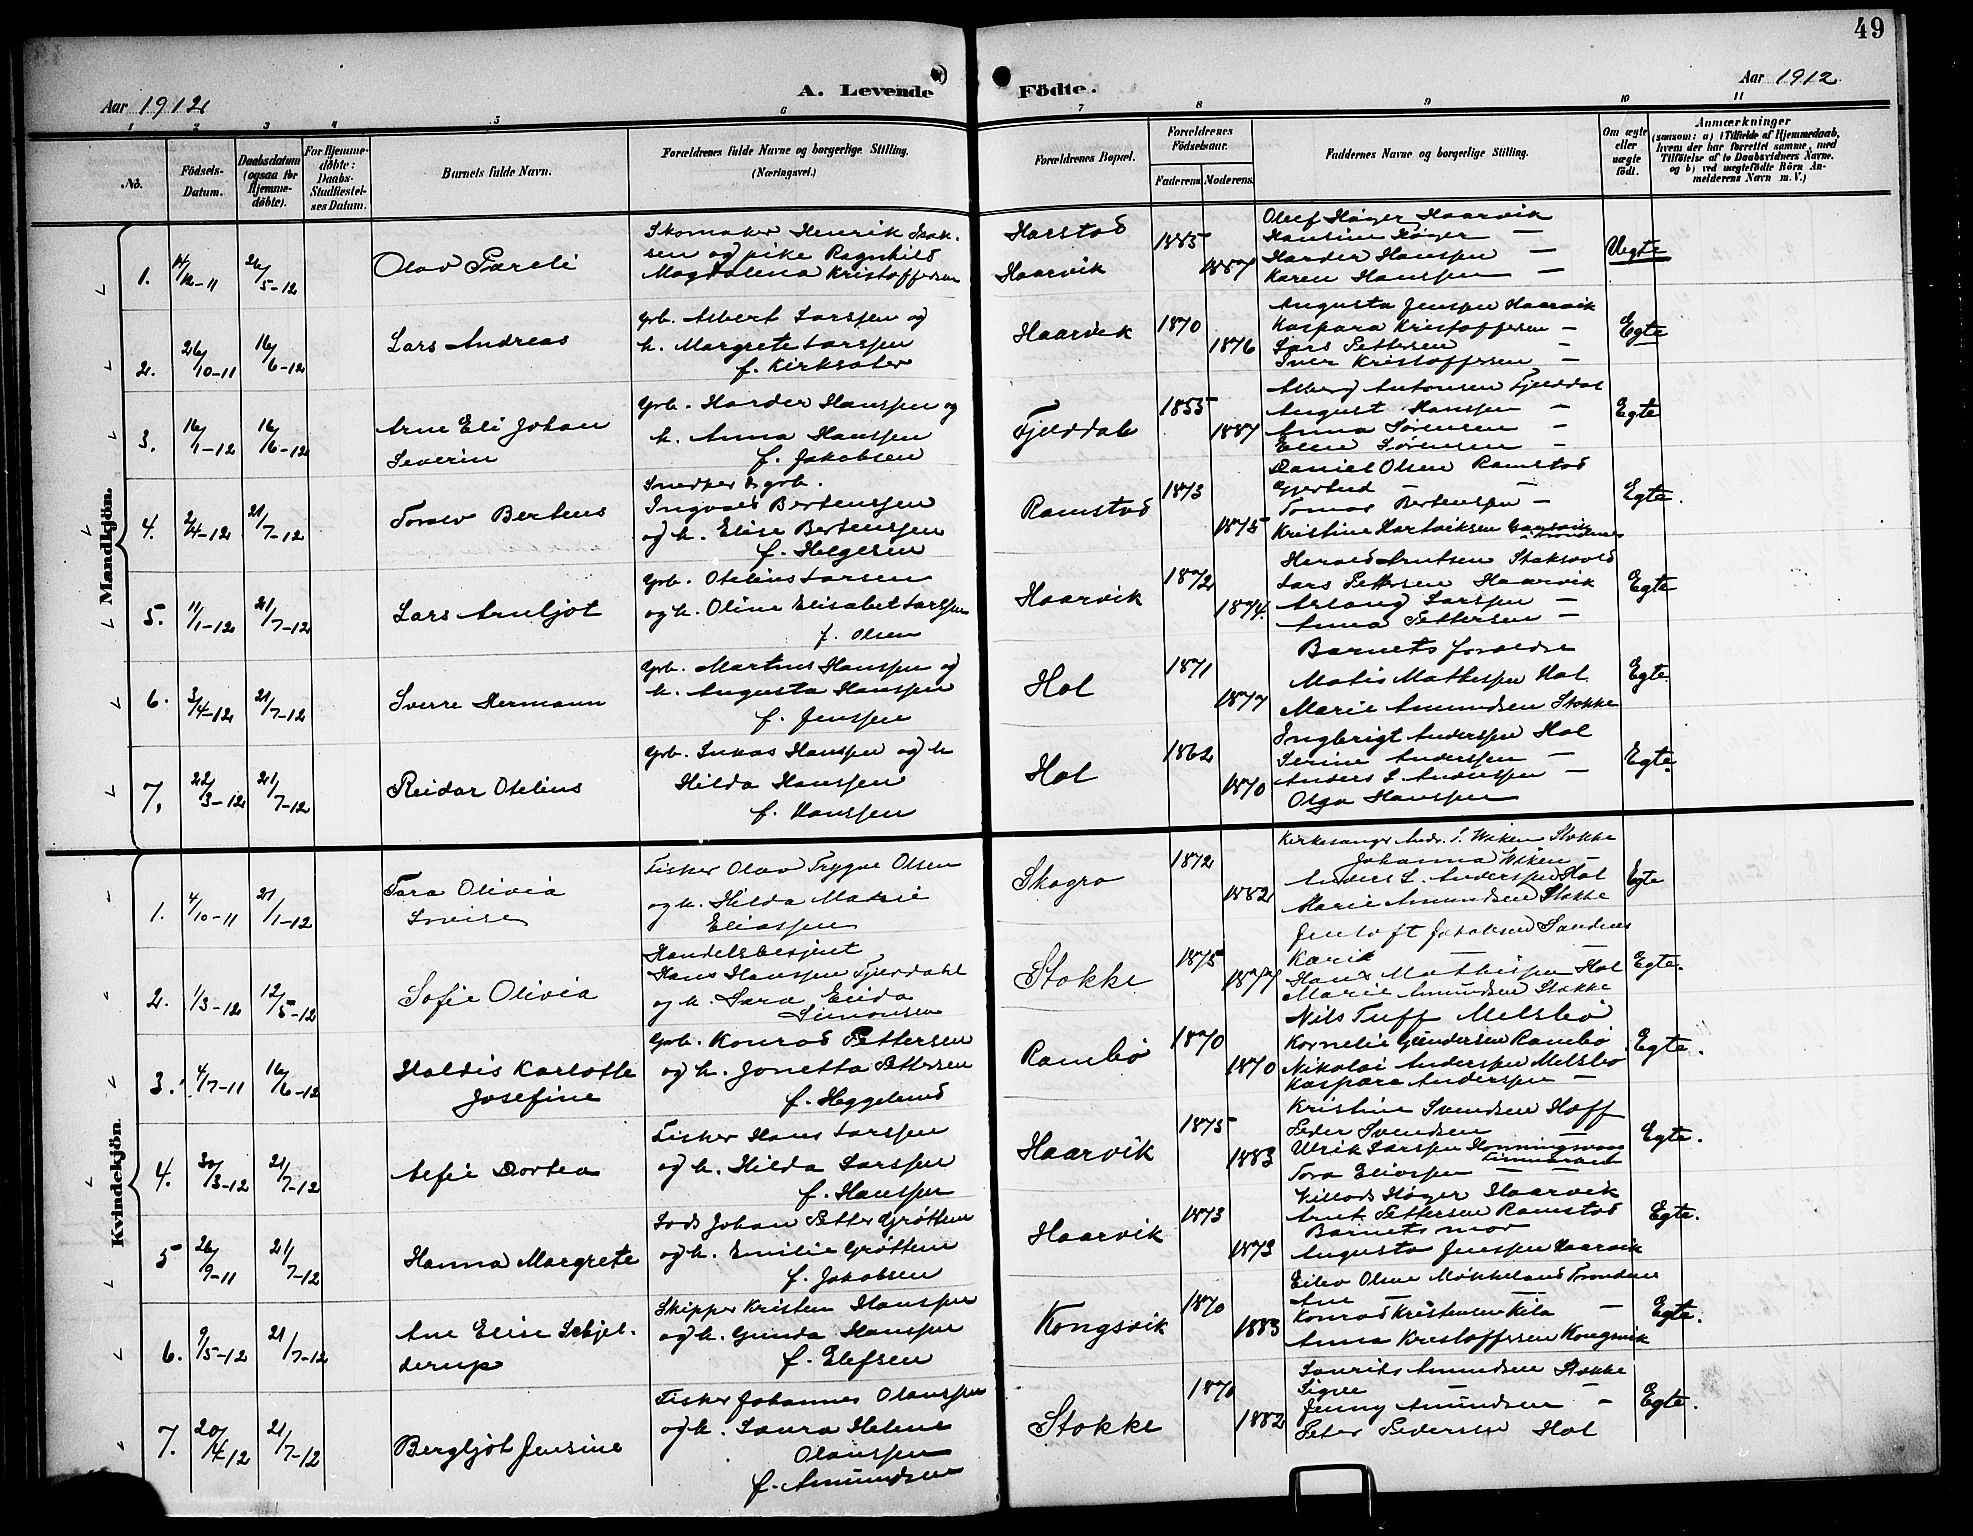 49
Aar 1912
A. Levende
Födte.
Aar 1912
1 2 3 4 5 6 7 8 9 10 11
No.
Födsels-
Datum.
Daabsdatum
(ogsaa for
Hjemme-
döbte).
For Hjemme-
döbte:
Daabs-
Stadfæstel-
ses Datum.
Barnets fulde Navn.
Forældrenes fulde Navne og borgerlige Stilling.
(Næringsvei.)
Forældrenes Bopæl.
Forældrenes
Födselsaar.
Faderens. Moderens.
Faddernes Navne og borgerlige Stilling.
Om ægte
eller
uægte
født.
Anmærkninger
(saasom: a) i Tilfælde af Hjemmedaab,
hvem der har forrettet samme, med
Tilföielse af to Daabsvidners Navne.
og b) ved uægtefödte Börn An-
melderens Navn m. V.)
Mandkjön.
1. 14/12-11 26/5-12
Olav
Skomaker Henrik Isak-
sen og pike Ragnhild
Magdalena Kristoffersen
Harstad
Haarvik
1885
1887
Olelf Høger Haarvik
Hansine Høger —
Harder Hanssen —
Karen Hanssen —
Uegte
2. 26/10-11 16/6-12
Lars Andreas
Grb. Albert Larssen og
h. Margrete Larssen
f. Kirksæter
Haarvik
1870
1876
Augusta Jenssen Haarvik
Kaspara Kristoffersen —
Lars Pettersen —
Iver Kristoffersen —
Egte
3. 16/1-12 16/6-12
Arne Eli Johan
Severin
Grb. Harder Hanssen og
h. Anna Hanssen
f. Jakobsen
Fjelddal
1855
1887
Antonsen Fjelddal
August Hanssen —
Anna Sørensen —
Eline Sørensen —
Egte
4. 2/4-12 21/7-12
Toralv Bertens
Snedker & grb.
Ingvald Bertenssen
og h. Elise Bertenssen
f. Helgesen
Ramstad
1873
1875
Daniel Olsen Ramstad
Gjertrud — —
Tomas Bertenssen —
Kristine Hartviksen
Egte.
5. 11/1-12 21/7-12
Lars Arnljot
Grb. Otelius Larsen
og h. Oline Elisabet Larssen
f. Olsen
Haarvik
1872
1874.
Herald Arntsen
Lars Pettersen Haarvik
Larssen —
Anna Pettersen —
Egte
6. 3/4-12 21/7-12
Sverre Hermann
Grb. Martines Hanssen og
h. Augusta Hanssen
f. Jenssen
Hol
1871
1877
Barnets foreldre
Matis Mathissen Hol
Marie Amundsen Stokke
Egte.
7. 22/3-12 21/7-12
Reidar Otelius
Grb. Lukas Hanssen og h
Hilda Hanssen
f. Hanssen
Hol
1862
1870
Ingbrigt Anderssen Hol
Serine Anderssen —
Anders L. Anderssen —
Olga Hanssen
Egte.
Kvindekjön.
1. 4/10-11 21/1-12
Tora Olivia
Lovise
Fisker Olav Trygve Olsen
og h. Hilda Marie
Eliassen
Skogro
1872
1882
Kirkesanger Andr. Wiken Stokke
Johanna Wiken —
Anders L. Anderssen Hol
Marie Amundsen Stokke
Egte
2. 1/3-12 12/5-12
Sofie Olivia
Handelsbetjent
Hans Hanssen Fjelddahl
og h. Sara Elida
Simonsen
Stokke
1875
1877
Jentoft Jakobsen Sandnes
Karik —
Hans Mathissen Hol
Marie Amundsen Stokke
Egte.
3. 4/7-11 16/6-12
Haldis Karlotte
Josefine
Grb. Konrad Pettersen
og h. Jonetta Pettersen
f. Heggelund
Rambø
1870
1870
Nils Tuff Melsbø
Kornelie Gundersen Rambø
Nikolai Anderssen Melsbø
Kaspara Anderssen —
Egte.
4. 30/3-12 21/7-12
Alfie Dortea
Fisker Hans Larssen
og h. Hilda Larssen
f. Hanssen
Haarvik
1875
1883
Kristine Svendsen Hoff
Peder Svendsen —
Ulrik Larssen Honningsvaag
Finmarken
Tora Eliassen —
Egte.
5 26/9-11 21/7-12
Hanna Margrete
Lods Johan Petter Grøttum
og h. Emilie Grøttum
f. Jakobsen
Haarvik
1873
1873
Villads Høger Haarvik
Arnt Pettersen Ramstad
Barnets mor
Augusta Jenssen Haarvik
Egte.
6. 9/5-12 21/7-12
Ane Elise Schjel-
derup
Skipper Kristen Hanssen
og h. Gunda Hanssen
f. Elefsen
Kongsvik
1870
1883
Eilev Olsen Møkkeland Trondenes
Ane — —
Konrad Kristensen Kila —
Anna Kristoffersen Kongsvik
Egte.
7. 20/4-12 21/7-12
Bergljot Jensine
Fisker Johannes Olaussen
og h. Laura Helene
Olaussen
f. Amundsen
Stokke
1870
1882
Laurits Amundsen Stokke
Signe
Jenny Amundsen —
Peter Pedersen Hol
Egte.